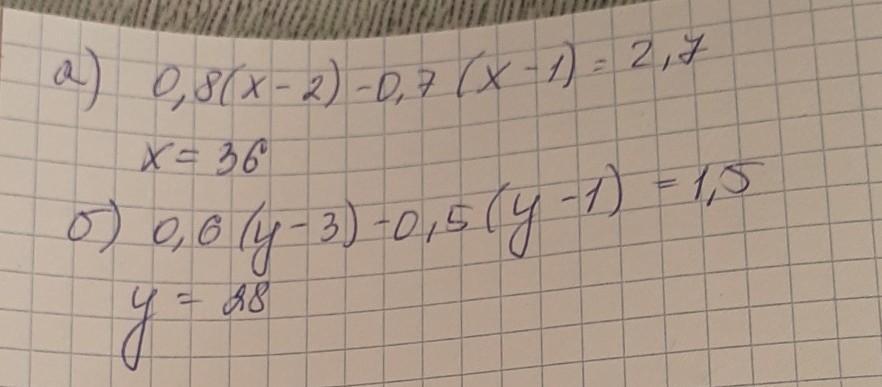 а) 0,8(x-2)-0,7(x-1)=2,7
x=36
б) 0,6(y-3)-0,5(y-1)=1,5
y=28